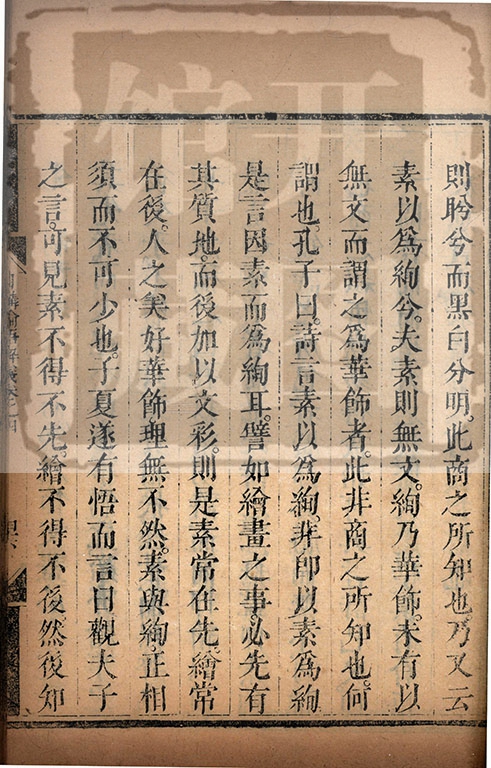 則盼兮而黑白分明。此商之所知也。乃又云
素以爲絢兮。夫素則無文。絢乃華飾。未有以
無文而謂之爲華飾者。此非商之所知也。何
謂也。孔子曰。詩言素以爲絢。非卽以素爲絢
是言因素而爲絢耳。譬如繪畫之事。必先有
其質地。而後加以文彩。則是素常在先。繪常
在後。人之美好華飾。理無不然。素與絢。正相
須而不可少也。子夏遂有悟而言曰。觀夫子
之言。可見素不得不先。繪不得不後。然後知